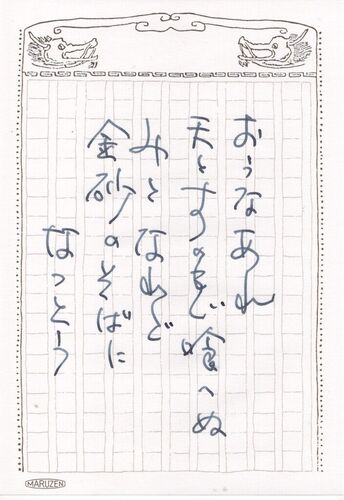 おうなあれ
天とすの 喰へぬ
みとなれど
金砂のそばに
なっとう
MARUZEN